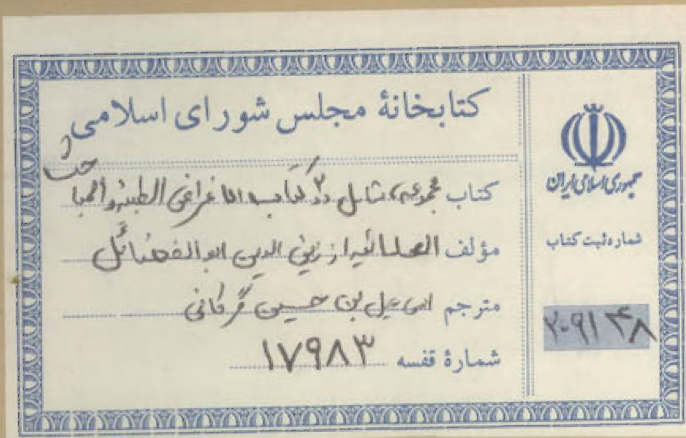 کتابخانهٔ مجلس شورای اسلامی
کتاب مجموعه، شامل دو ۲ کتاب الاغراض الطبیة والمبا
حث
مؤلف العلائیه از زین الدین ابوالفضائل
مترجم اسماعیل بن حسین گرگانی
شمارهٔ قفسه ۱۷۹۸۳
جمهوری اسلامی ایران
شماره ثبت کتاب
۲۰۹۱۴۸